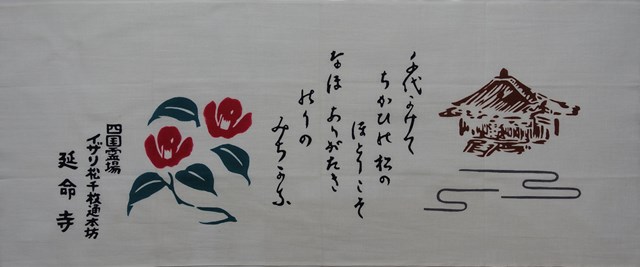 千代かけて
ちかひの松の
ほとりこそ
なほありがたき
のりの
みちかな
四国霊場
イザリ松千枚通本坊
延命寺